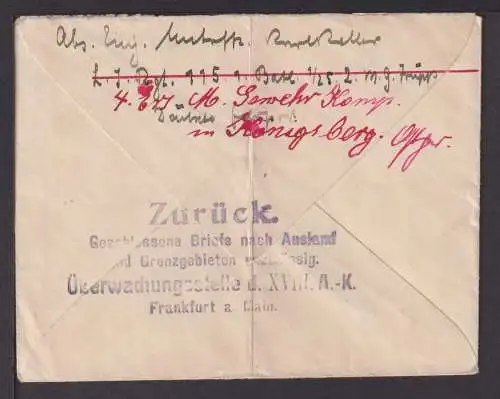 Abs. Karl Keller
L. J. Rgt. 115 1. Batl. 2. M. G.
4. M. Gewehr Komp.
in Königsberg. Ostpr.
Zurück.
Geschlossene Briefe nach Ausland
und Grenzgebieten unzulässig.
Überwachungsstelle d. XVIII. A.-K.
Frankfurt a. Main.